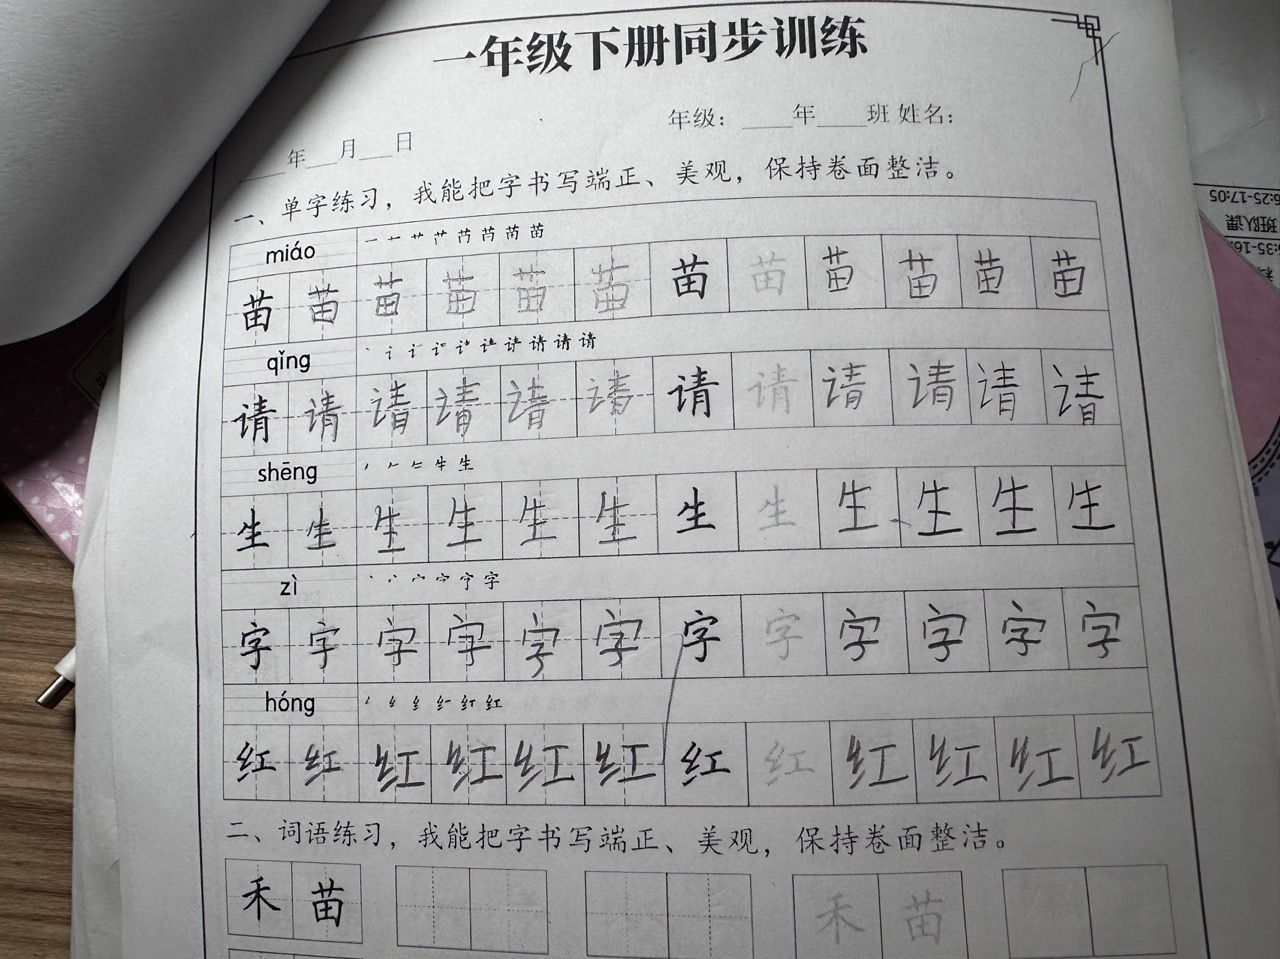 一年级下册同步训练
年级：____年____班 姓名：
____年___月___日
一、单字练习，我能把字书写端正、美观，保持卷面整洁。
miáo
苗 苗 苗 苗 苗 苗 苗 苗 苗 苗 苗 苗
qǐng
请 请 请 请 请 请 请 请 请 请 请 请
shēng
生 生 生 生 生 生 生 生 生 生 生 生
zì
字 字 字 字 字 字 字 字 字 字 字 字
hóng
红 红 红 红 红 红 红 红 红 红 红 红
二、词语练习，我能把字书写端正、美观，保持卷面整洁。
禾苗 禾苗
6:25-17:05
班队课